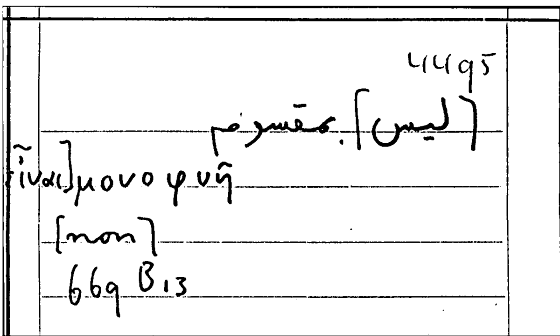 4495
[ليس] بمقسوم
εἶναι] μονοφυῆ
[non]
669 B13